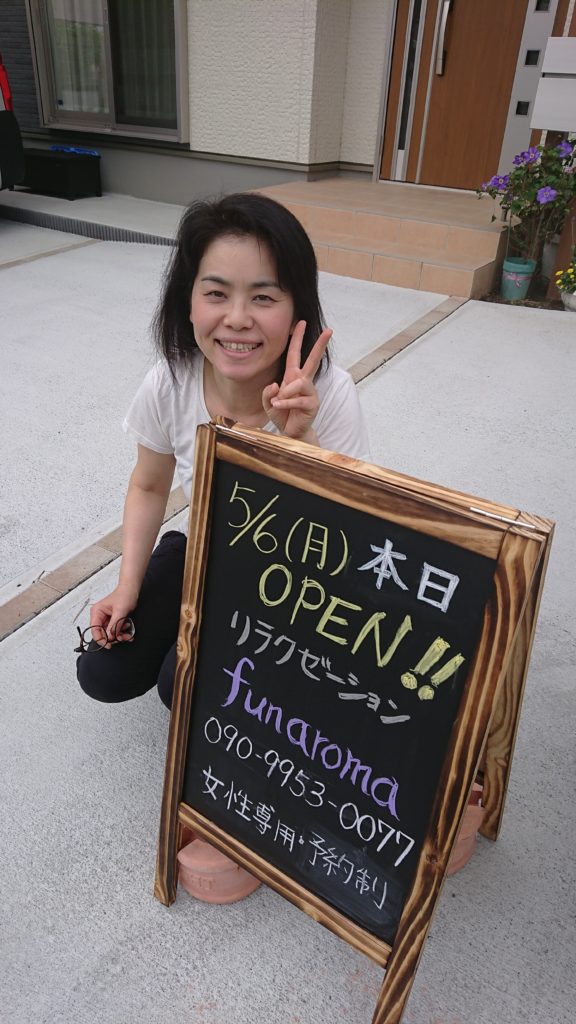 5/6(月)本日
OPEN!!
リラクゼーション
funaroma
090-9953-0077
女性専用・予約制